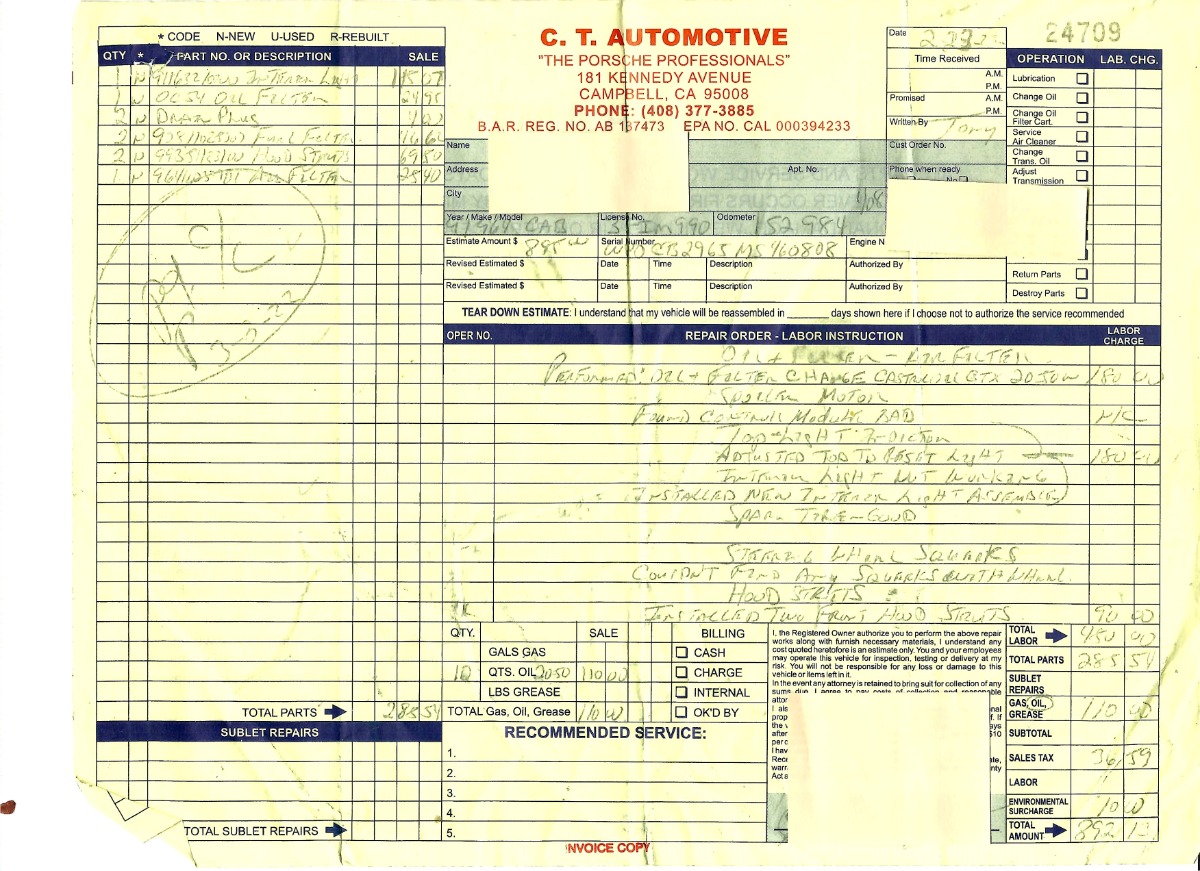 * CODE N-NEW U-USED R-REBUILT
QTY * PART NO. OR DESCRIPTION SALE
1 N
1 N OC54 OIL FILTER 24 95
2 N DRAIN PLUG 4 00
2 N FUEL FILTER 46 62
2 N HOOD STRUTS 69 50
1 N AIR FILTER 25 40
Pd. C/C
TOTAL PARTS 285 54
SUBLET REPAIRS
TOTAL SUBLET REPAIRS
C. T. AUTOMOTIVE
"THE PORSCHE PROFESSIONALS"
181 KENNEDY AVENUE
CAMPBELL, CA 95008
PHONE: (408) 377-3885
B.A.R. REG. NO. AB 187473 EPA NO. CAL 000394233
24709
Date
Time Received
A.M.
P.M.
Promised A.M.
P.M.
Written By Tony
Cust Order No.
Phone when ready
Name
Address Apt. No.
City
Year / Make / Model License No. Odometer
91 964 CAB 152984
Estimate Amount $ Serial Number Engine N
895 00 WPOCB2965MS460808
Revised Estimated $ Date Time Description Authorized By
Revised Estimated $ Date Time Description Authorized By
OPERATION LAB. CHG.
Lubrication
Change Oil
Change Oil
Filter Cart.
Service
Air Cleaner
Change
Trans. Oil
Adjust
Transmission
Return Parts
Destroy Parts
TEAR DOWN ESTIMATE: I understand that my vehicle will be reassembled in ________ days shown here if I choose not to authorize the service recommended
OPER NO. REPAIR ORDER - LABOR INSTRUCTION LABOR
CHARGE
OIL + FILTER - AIR FILTER
PERFORMED OIL + FILTER CHANGE CASTROL GTX 2050W 180 00
SPOILER MOTOR
FOUND CONTROL MODULE BAD N/C
TOP LIGHT
ADJUSTED TOP TO RESET LIGHT 180 00
INTERIOR LIGHT NOT WORKING
INSTALLED NEW INTERIOR LIGHT ASSEMBLY
SPARE TIRE - GOOD
STEERING WHEEL SQUEAKS
COULDN'T FIND ANY SQUEAKS WITH WHEEL
HOOD STRUTS
INSTALLED TWO FRONT HOOD STRUTS 90 00
QTY. SALE
GALS GAS
10 QTS. OIL 2050 110 00
LBS GREASE
TOTAL Gas, Oil, Grease 110 00
BILLING
CASH
CHARGE
INTERNAL
OK'D BY
I, the Registered Owner authorize you to perform the above repair
works along with furnish necessary materials, I understand any
cost quoted heretofore is an estimate only. You and your employees
may operate this vehicle for inspection, testing or delivery at my
risk. You will not be responsible for any loss or damage to this
vehicle or items left in it.
In the event any attorney is retained to bring suit for collection of any
sums due, I agree to pay costs of collection and reasonable
TOTAL
LABOR 450 00
TOTAL PARTS 285 54
SUBLET
REPAIRS
GAS, OIL,
GREASE 110 00
SUBTOTAL
SALES TAX 36 59
LABOR
ENVIRONMENTAL
SURCHARGE 10 00
TOTAL
AMOUNT 892 13
RECOMMENDED SERVICE:
1.
2.
3.
4.
5.
INVOICE COPY